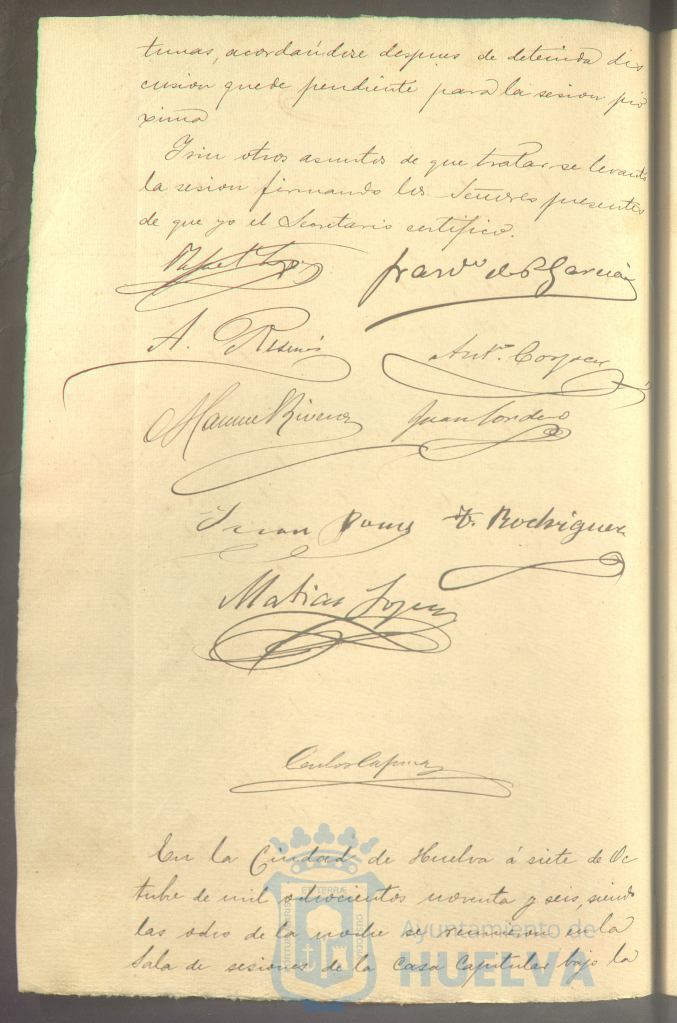 tunas, acordandose despues de detenida dis
cusion quede pendiente para la sesion pro
xima
Y sin otros asuntos de que tratar se levantó
la sesion firmando los Señores presentes
de que yo el Secretario certifico.
Rafael Lopez
Franco de P Garcia
A. Resines
Anto
Manuel Rivera
Juan Cordero
Juan
F. Rodriguez
Matias Lopez
Carlos
En la Ciudad de Huelva á siete de Oc
tubre de mil ochocientos noventa y seis, siendo
las ocho de la noche se reunieron en la
Sala de sesiones de la Casa Capitular bajo la
Ayuntamiento de
HUELVA